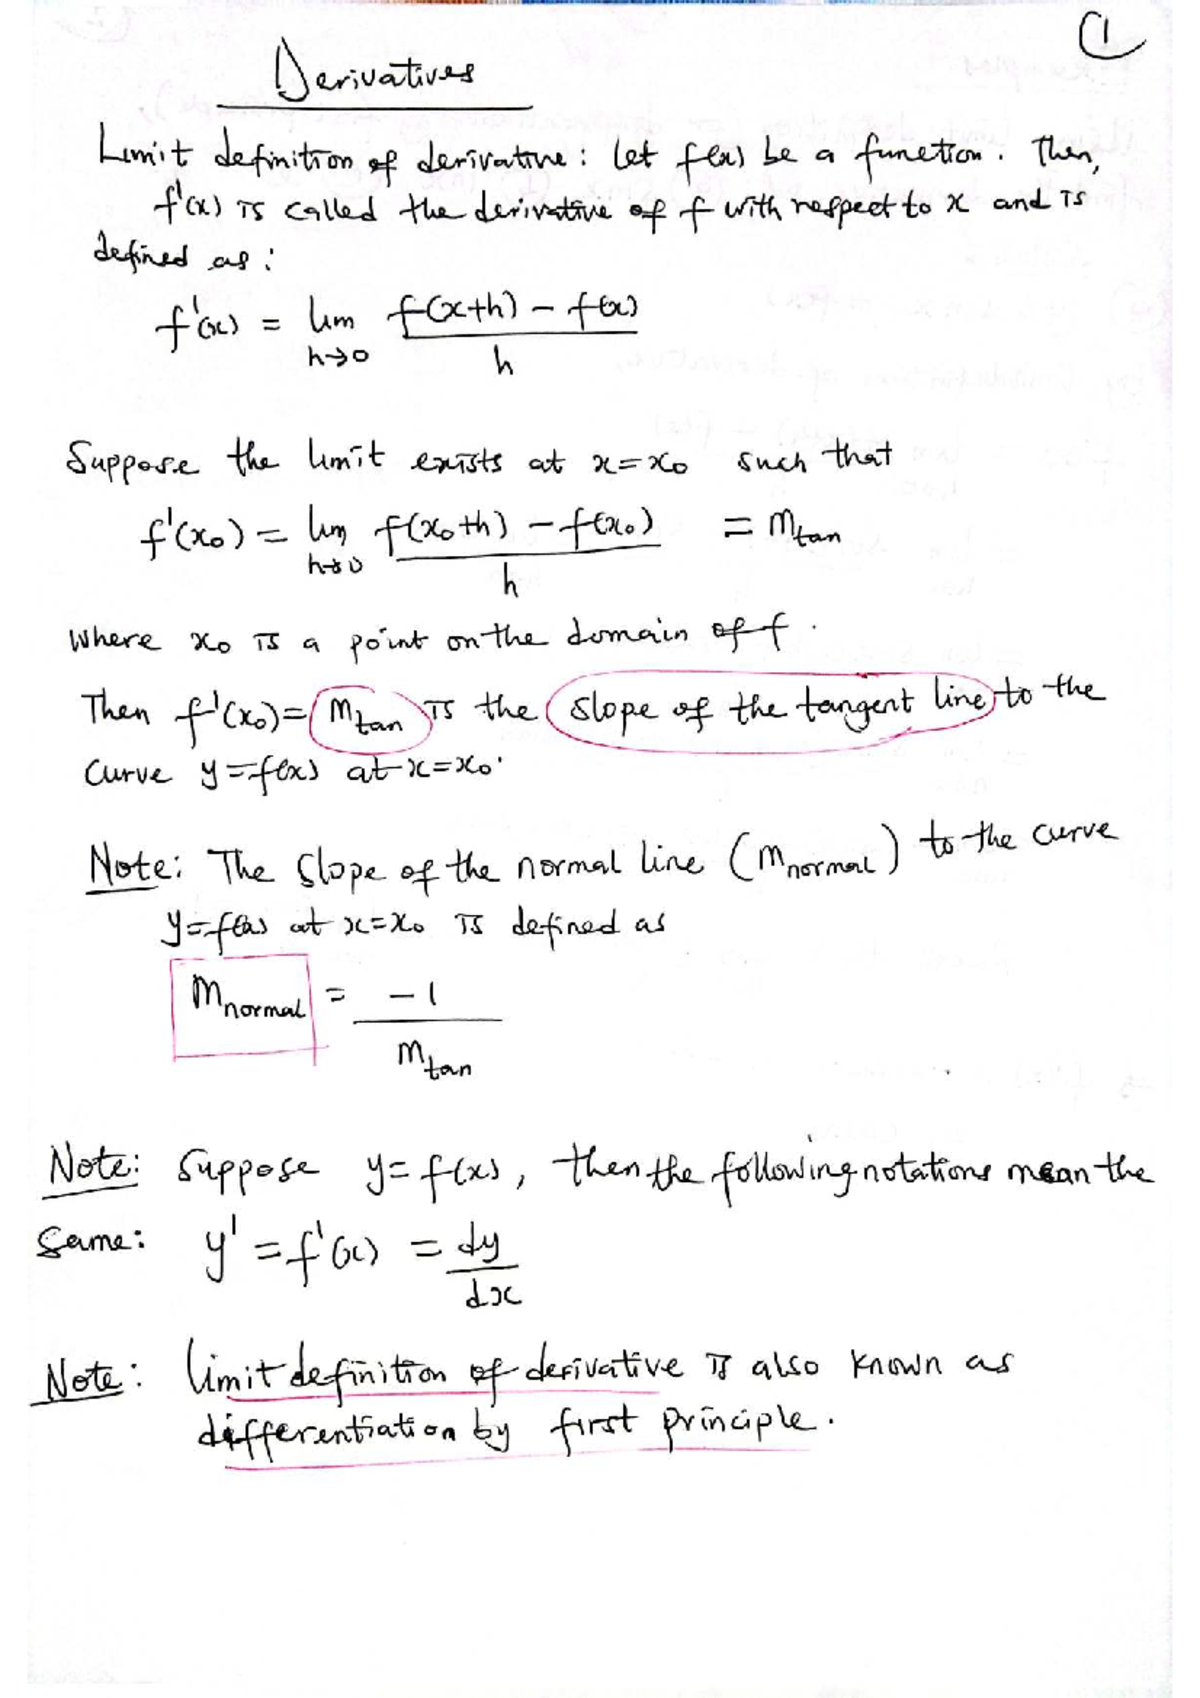 1
Derivatives
Limit definition of derivative: let f(x) be a function. Then,
f'(x) is called the derivative of f with respect to x and is
defined as:
f'(x) = lim f(x+h) - f(x)
h→0 h
Suppose the limit exists at x=x₀ such that
f'(x₀) = lim f(x₀+h) - f(x₀) = m_tan
h→0 h
where x₀ is a point on the domain of f.
Then f'(x₀) = m_tan is the slope of the tangent line to the
curve y=f(x) at x=x₀.
Note: The slope of the normal line (m_normal) to the curve
y=f(x) at x=x₀ is defined as
m_normal = -1
m_tan
Note: Suppose y=f(x), then the following notations mean the
same: y' = f'(x) = dy
dx
Note: Limit definition of derivative is also known as
differentiation by first principle.